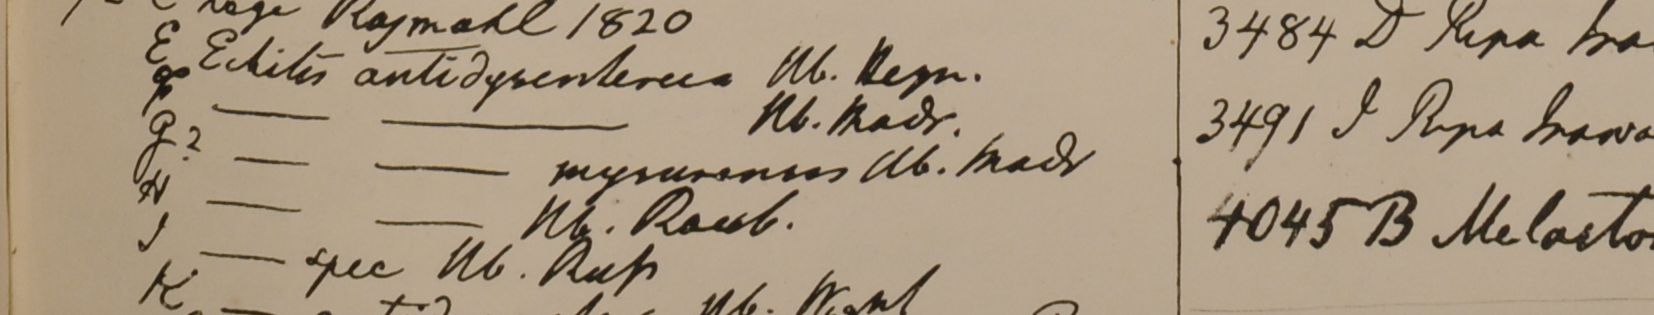 Rajmahl 1820
E Echites antidysenterica Hb. Heyn.
F — — Hb. Madr.
G? — — mysurensis Hb. Madr
H — — Hb. Roxb.
I — spec Hb. Russ
K — Hb. Wight
3484 D Ripa Irra
3491 I Ripa Irrawa
4045 B Melasto